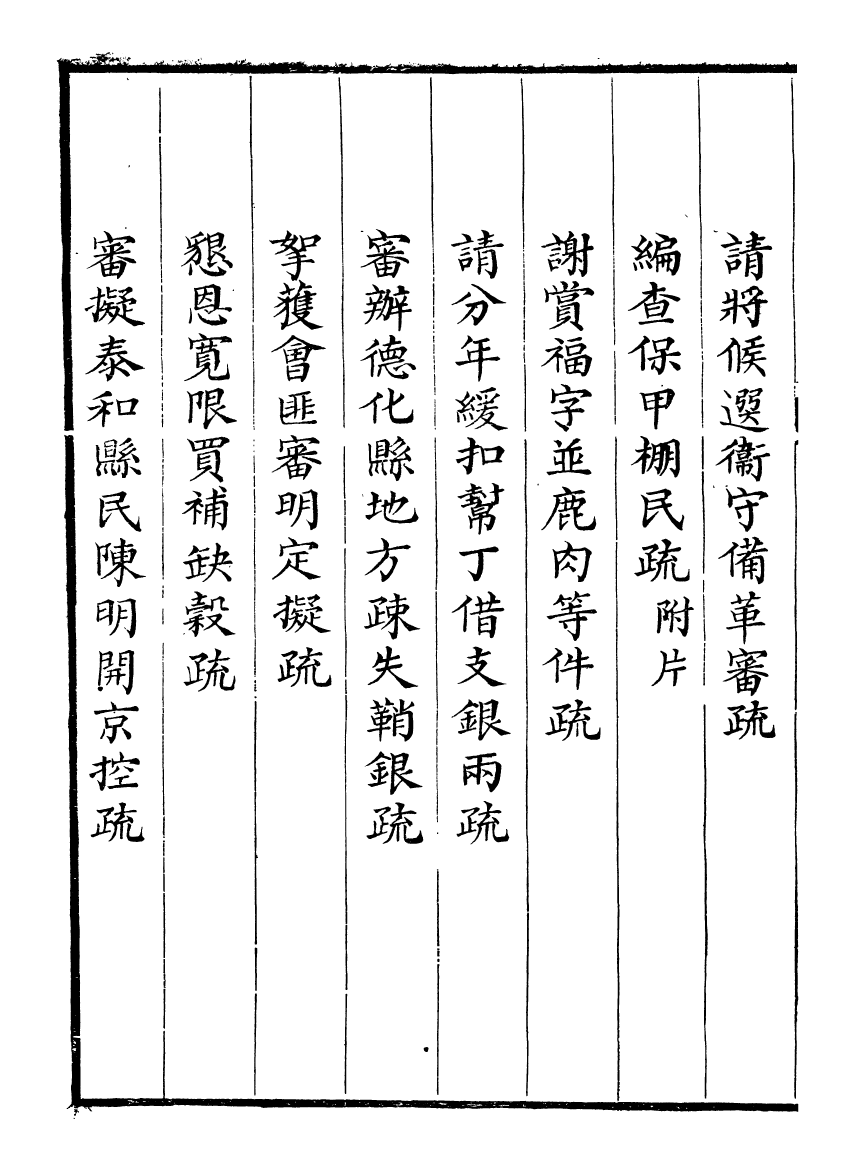 請將候選衞守備革審疏
編查保甲棚民疏附片
謝賞福字並鹿肉等件疏
請分年緩扣幫丁借支銀兩疏
審辦德化縣地方疎失鞘銀疏
拏獲會匪審明定擬疏
懇恩寬限買補缺穀疏
審擬泰和縣民陳明開京控疏